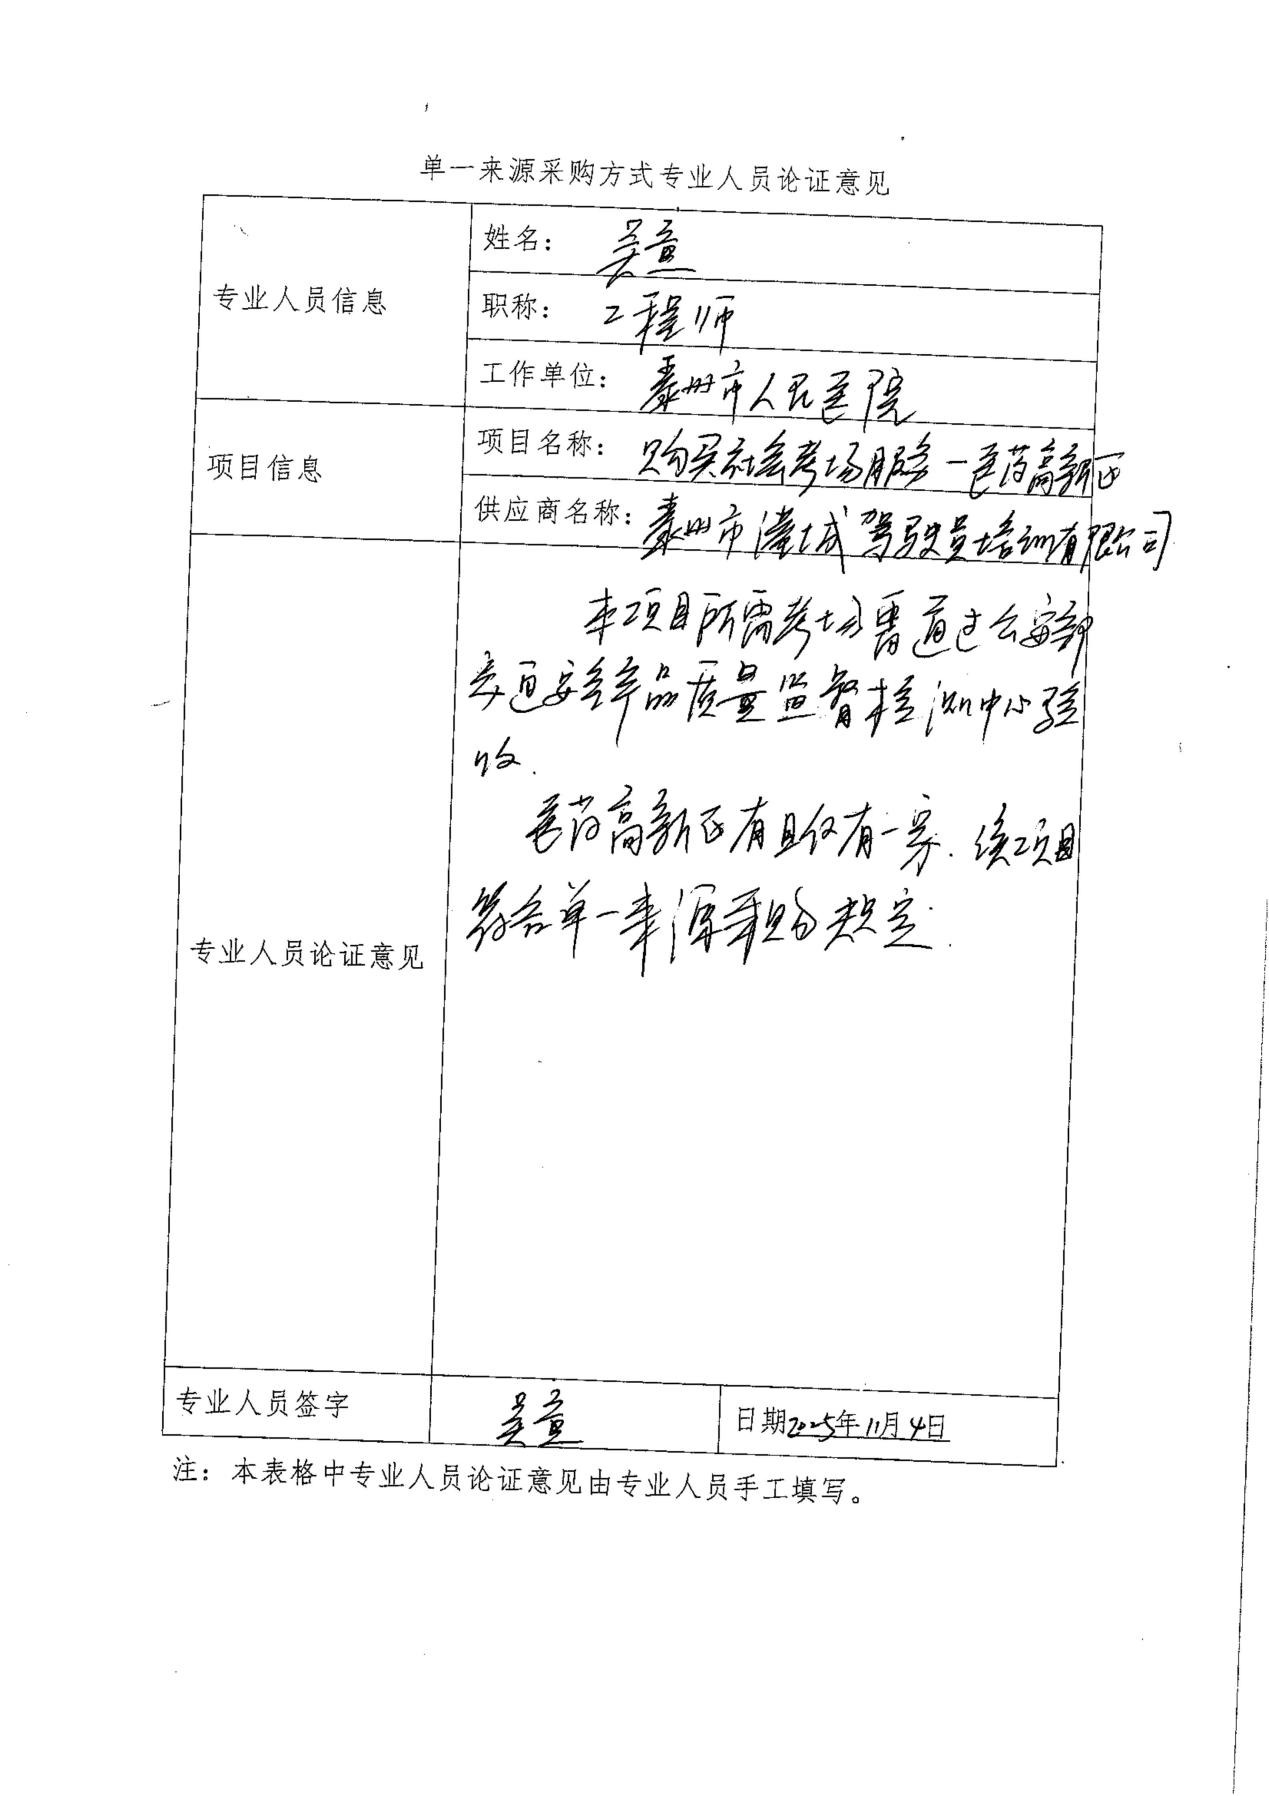 单一来源采购方式专业人员论证意见
专业人员信息
姓名：吴童
职称：工程师
工作单位：泰州市人民医院
项目信息
项目名称：购买社会考场服务一医药高新区
供应商名称：泰州市 城驾驶员培训有限公司
专业人员论证意见
本项目所需考场需通过公安部
交通安全产品质量监督检测中心验
收.
医药高新区有且仅有一家.该项目
符合单一来源采购规定.
专业人员签字
吴童
日期2025年11月4日
注：本表格中专业人员论证意见由专业人员手工填写。